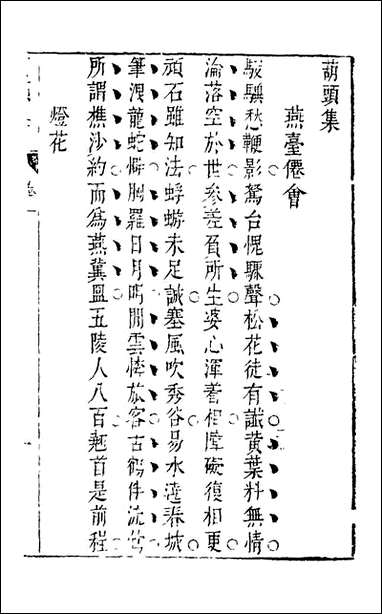 葫頭集
燕臺僊會
駁驥愁鞭影駑台愧驟聲松花徒有讖黃葉料無情
淪落空於世參差負所生婆心渾著相障礙復相更
頑石雖知法蜉蝣未足誠塞風吹秀谷易水遶春城
筆洩龍蛇燐胸羅日月明閒雲悽旅客古鶴伴沈
所謂樵沙約而爲燕冀盟五陵人八百翹首是前程
燈花
卷一